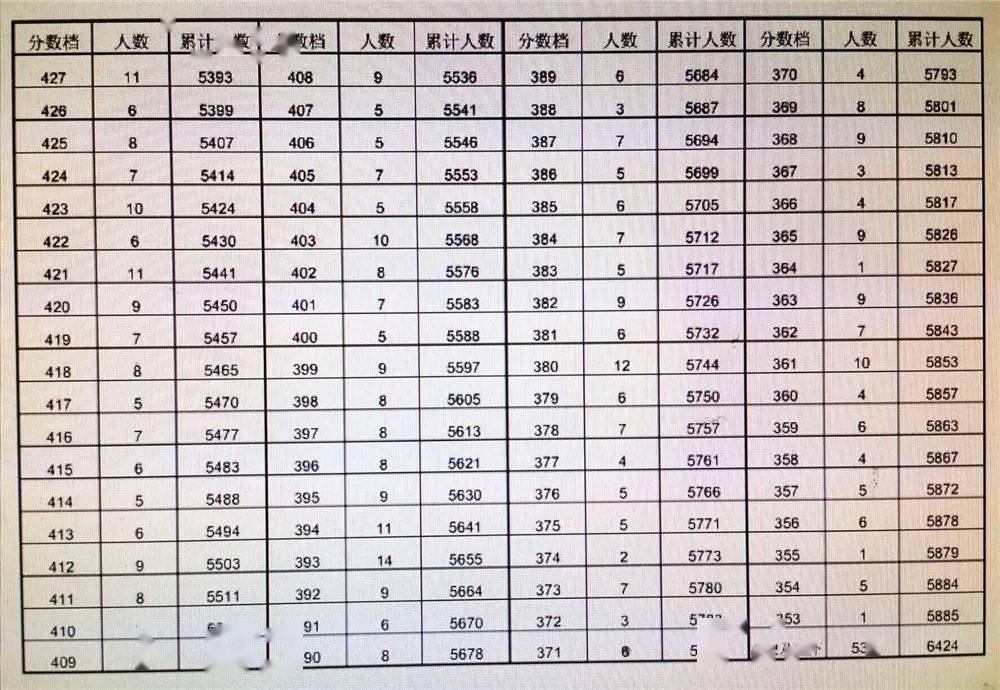 分数档 人数 累计 数 数档 人数 累计人数 分数档 人数 累计人数 分数档 人数 累计人数
427 11 5393 408 9 5536 389 6 5684 370 4 5793
426 6 5399 407 5 5541 388 3 5687 369 8 5801
425 8 5407 406 5 5546 387 7 5694 368 9 5810
424 7 5414 405 7 5553 386 5 5699 367 3 5813
423 10 5424 404 5 5558 385 6 5705 366 4 5817
422 6 5430 403 10 5568 384 7 5712 365 9 5826
421 11 5441 402 8 5576 383 5 5717 364 1 5827
420 9 5450 401 7 5583 382 9 5726 363 9 5836
419 7 5457 400 5 5588 381 6 5732 362 7 5843
418 8 5465 399 9 5597 380 12 5744 361 10 5853
417 5 5470 398 8 5605 379 6 5750 360 4 5857
416 7 5477 397 8 5613 378 7 5757 359 6 5863
415 6 5483 396 8 5621 377 4 5761 358 4 5867
414 5 5488 395 9 5630 376 5 5766 357 5 5872
413 6 5494 394 11 5641 375 5 5771 356 6 5878
412 9 5503 393 14 5655 374 2 5773 355 1 5879
411 8 5511 392 9 5664 373 7 5780 354 5 5884
410 91 6 5670 372 3 353 1 5885
409 90 8 5678 371 6 6424